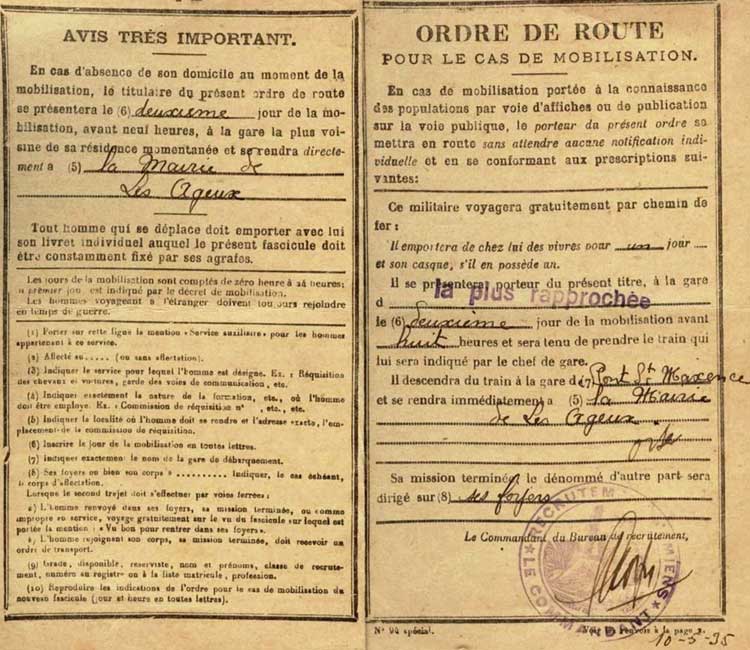 AVIS TRÈS IMPORTANT.
En cas d'absence de son domicile au moment de la
mobilisation, le titulaire du présent ordre de route
se présentera le (6) deuxième jour de la mo-
bilisation, avant neuf heures, à la gare la plus voi-
sine de sa résidence momentanée et se rendra directe-
ment a (5) la Mairie de
Les Ageux
Tout homme qui se déplace doit emporter avec lui
son livret individuel auquel le présent fascicule doit
être constamment fixé par ses agrafes.
Les jours de la mobilisation sont comptés de zéro heure à 24 heures;
le premier jour est indiqué par le décret de mobilisation.
Les hommes voyageant à l'étranger doivent toujours rejoindre
en temps de guerre.
(1) Porter sur cette ligne la mention « Service auxiliaire » pour les hommes
appartenant à ce service.
(2) Affecté au..... (ou sans affectation).
(3) Indiquer le service pour lequel l'homme est désigné. Ex. : Réquisition
des chevaux et voitures, garde des voies de communication, etc.
(4) Indiquer exactement la nature de la formation, etc., où l'homme
doit être employé. Ex. : Commission de réquisition n° , etc., etc.
(5) Indiquer la localité où l'homme doit se rendre et l'adresse exacte, l'em-
placement de la commission de réquisition.
(6) Inscrire le jour de la mobilisation en toutes lettres.
(7) Indiquer exactement le nom de la gare de débarquement.
(8) Ses foyers ou bien son corps à .......... Indiquer, le cas échéant,
le corps d'affectation.
Lorsque le second trajet doit s'effectuer par voies ferrées :
a) L'homme renvoyé dans ses foyers, sa mission terminée, ou comme
impropre au service, voyage gratuitement sur le vu du fascicule sur lequel est
portée la mention : « Vu bon pour rentrer dans ses foyers ».
b) L'homme rejoignant son corps, sa mission terminée, doit recevoir un
ordre de transport.
(9) Grade, disponible, réserviste, nom et prénoms, classe de recrute-
ment, numéro au registre ou à la liste matricule, profession.
(10) Reproduire les indications de l'ordre pour le cas de mobilisation du
nouveau fascicule (jour et heure en toutes lettres).
ORDRE DE ROUTE
POUR LE CAS DE MOBILISATION.
En cas de mobilisation portée à la connaissance
des populations par voie d'affiches ou de publication
sur la voie publique, le porteur du présent ordre se
mettra en route sans attendre aucune notification indi-
viduelle et en se conformant aux prescriptions sui-
vantes:
Ce militaire voyagera gratuitement par chemin de
fer :
Il emportera de chez lui des vivres pour un jour
et son casque, s'il en possède un.
Il se présentera, porteur du présent titre, à la gare
d la plus rapprochée
le (6) deuxième jour de la mobilisation avant
huit heures et sera tenu de prendre le train qui
lui sera indiqué par le chef de gare.
Il descendra du train à la gare de (7) Pont Ste Maxence
et se rendra immédiatement à (5) la Mairie
de Les Ageux
Sa mission terminée, le dénommé d'autre part sera
dirigé sur (8) ses foyers
RECRUTEMENT AMIENS
LE COMMANDANT
Le Commandant du Bureau de recrutement,
N° 94 spécial.
Voir le renvois à la page 2.
10-5-35